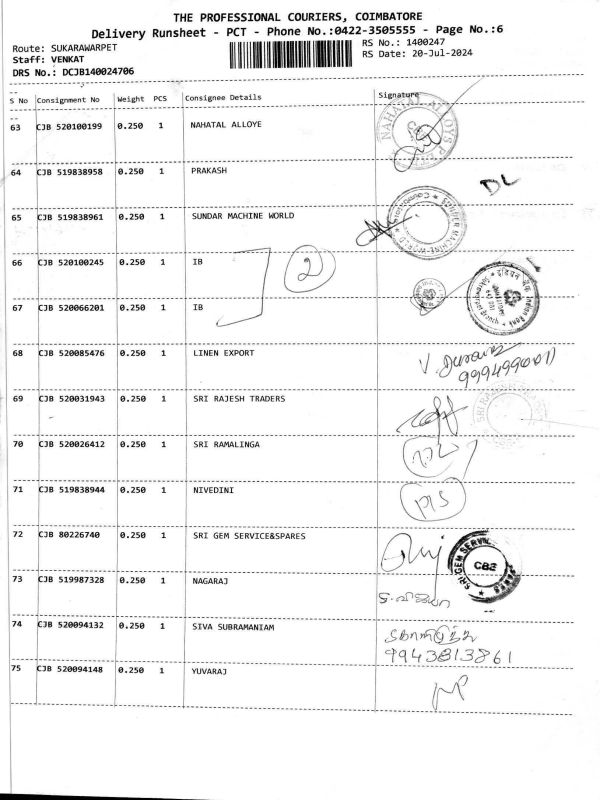 THE PROFESSIONAL COURIERS, COIMBATORE
Delivery Runsheet - PCT - Phone No.:0422-3505555 - Page No.:6
Route: SUKARAWARPET
RS No.: 1400247
Staff: VENKAT
RS Date: 20-Jul-2024
DRS No.: DCJB140024706
S No Consignment No Weight PCS Consignee Details Signature
63 CJB 520100199 0.250 1 NAHATAL ALLOYE
64 CJB 519838958 0.250 1 PRAKASH DL
65 CJB 519838961 0.250 1 SUNDAR MACHINE WORLD
66 CJB 520100245 0.250 1 IB 2
67 CJB 520066201 0.250 1 IB
68 CJB 520085476 0.250 1 LINEN EXPORT
69 CJB 520031943 0.250 1 SRI RAJESH TRADERS
70 CJB 520026412 0.250 1 SRI RAMALINGA
71 CJB 519838944 0.250 1 NIVEDINI
72 CJB 80226740 0.250 1 SRI GEM SERVICE&SPARES
SRI GEM SERVICE
CBE
73 CJB 519987328 0.250 1 NAGARAJ
74 CJB 520094132 0.250 1 SIVA SUBRAMANIAM
9943813861
75 CJB 520094148 0.250 1 YUVARAJ